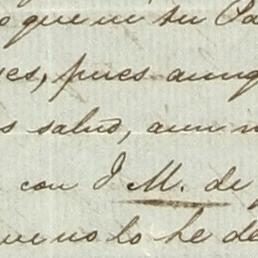 que ni su Pa
es, pues aunq
s salud, aun n
con J M. de
que no lo he de